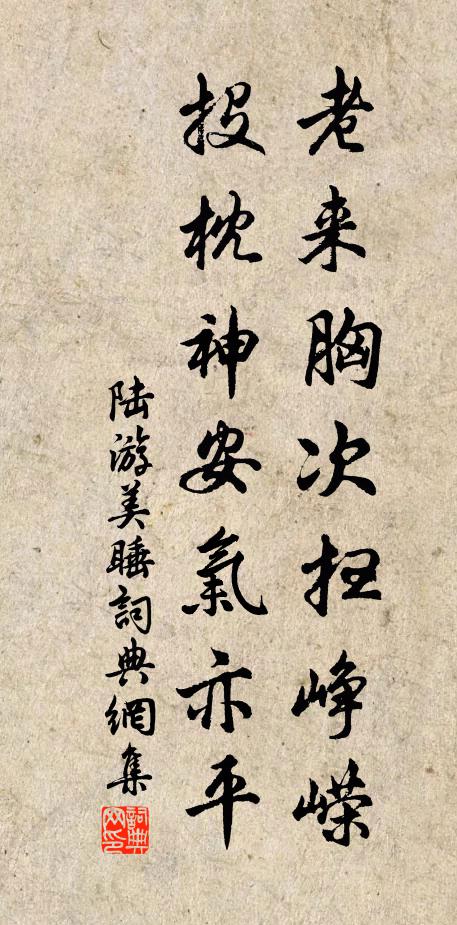 老来胸次扫峥嵘
投枕神安氣亦平
陆游美睡詞典網集
詞典网印